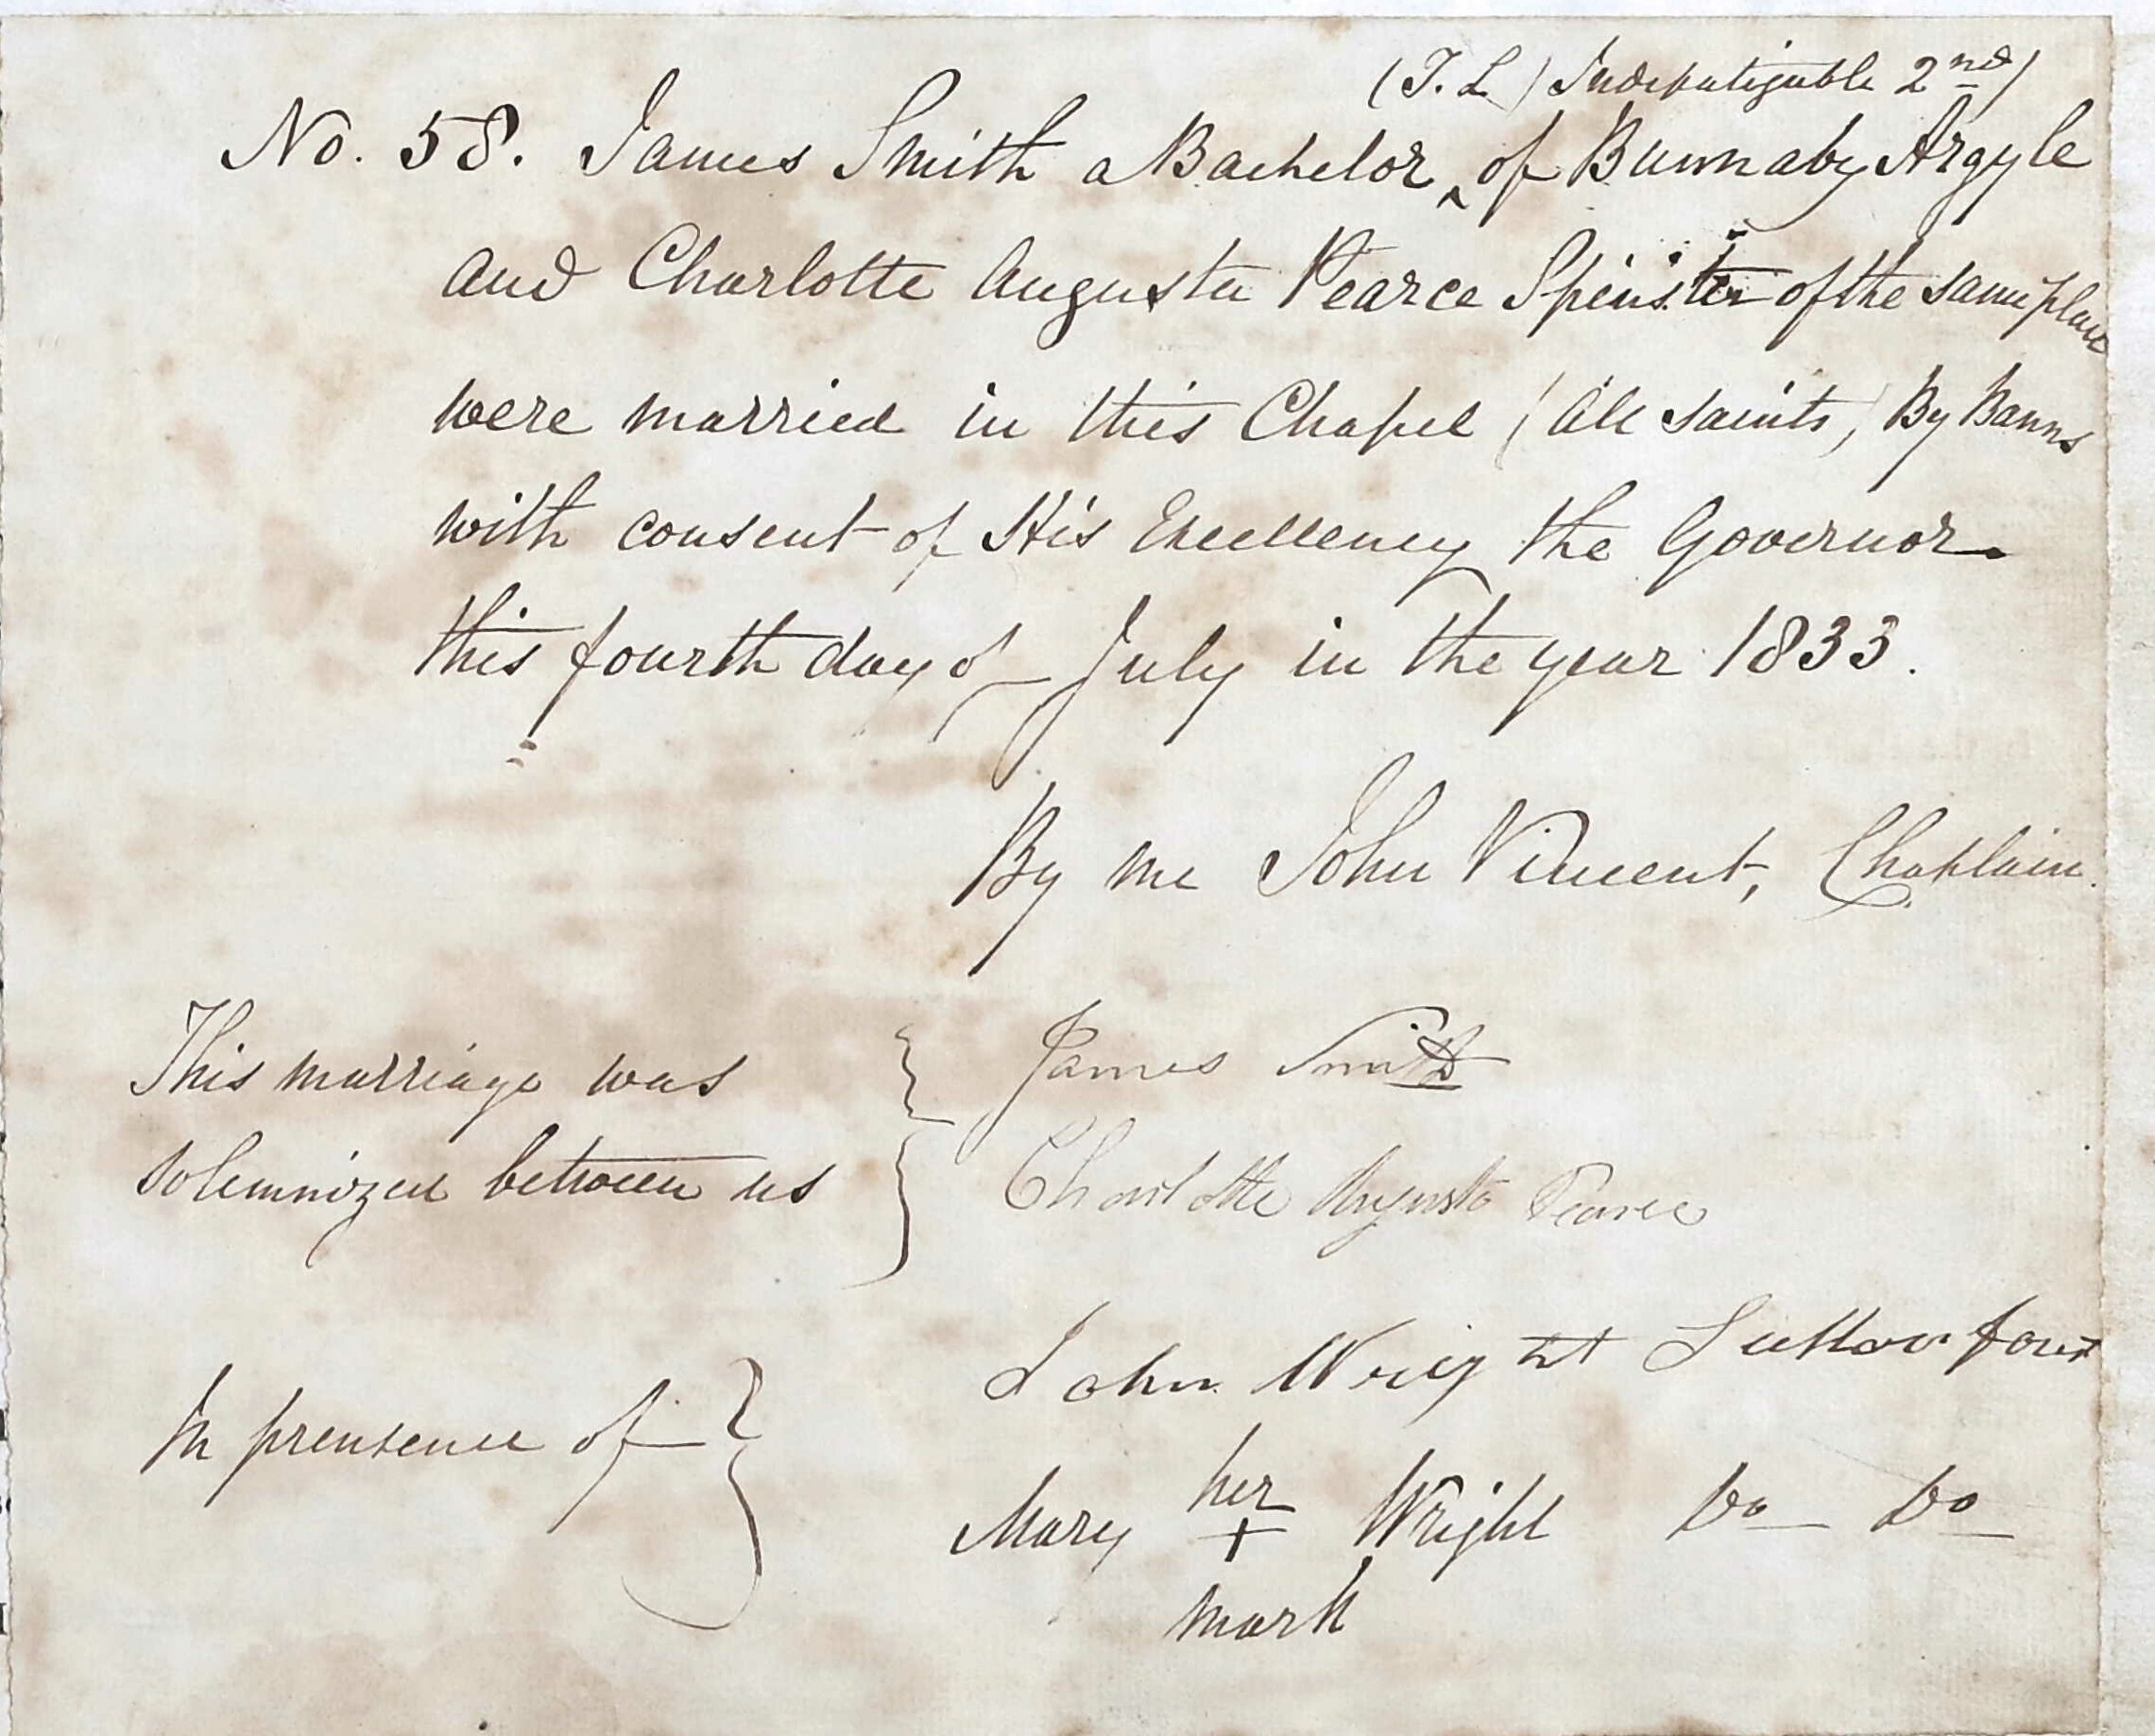 (T. L) Indefatigable 2nd)
No. 58. James Smith a Bachelor ^ of Bumnaby Argyle
and Charlotte Augusta Pearce Spinster of the same place
were married in this Chapel (All Saints) By Banns
with consent of His Excellency the Governor
this fourth day of July in the year 1833.
By me John Vincent, Chaplain.
This marriage was
solemnized between us
James Smith
Charlotte Augusta Pearce
In prensence of
John Wright Sutton forest
Mary her + mark Wright Do Do